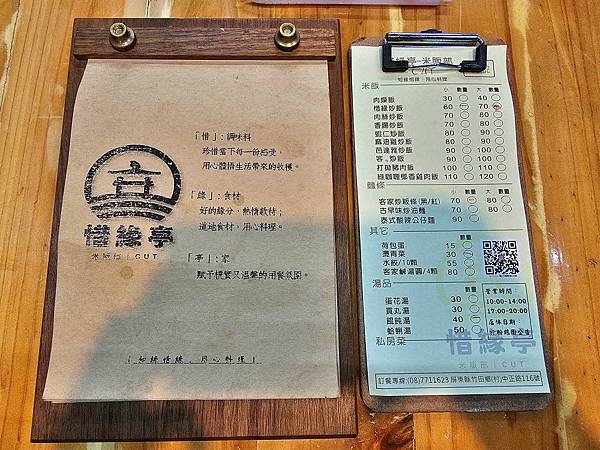 惜緣亭
米販部 | CUT
「惜」：調味料
珍惜當下每一份感受，
用心體悟生活帶來的收穫。
「緣」：食材
好的緣分，熱情款待；
道地食材，用心料理。
「亭」：家
賦予樸實又溫馨的用餐氛圍。
「知緣惜緣、用心料理」
緣亭 米販部
CUT
知緣惜緣，用心料理
米飯 小 數量 大 數量
肉燥飯 30 40
惜緣炒飯 60 70
肉絲炒飯 70 80
香腸炒飯 70 80
蝦仁炒飯 80 90
麻油雞炒飯 80 90
芭達雅炒飯 90 100
炒飯 90 100
打拋豬肉飯 100 110
綠咖喱椰香雞肉飯 110 120
麵條 小 數量 大 數量
客家炒粄條(黑/紅) 70 80
古早味炒油麵 70 80
泰式酸辣公仔麵 90
其它 數量
荷包蛋 15
燙青菜 30
水餃/10顆 55
客家鹹湯圓/4顆 80
湯品 數量
蛋花湯 30
貢丸湯 30
餛飩湯 40
蛤蜊湯 50
私房菜
營業時間：
10:00-14:00
17:00-20:00
店休日期：
依粉絲團公告
惜緣亭
米販部 | CUT
訂餐專線:(08)7711623 屏東縣竹田鄉(村)中正路116號